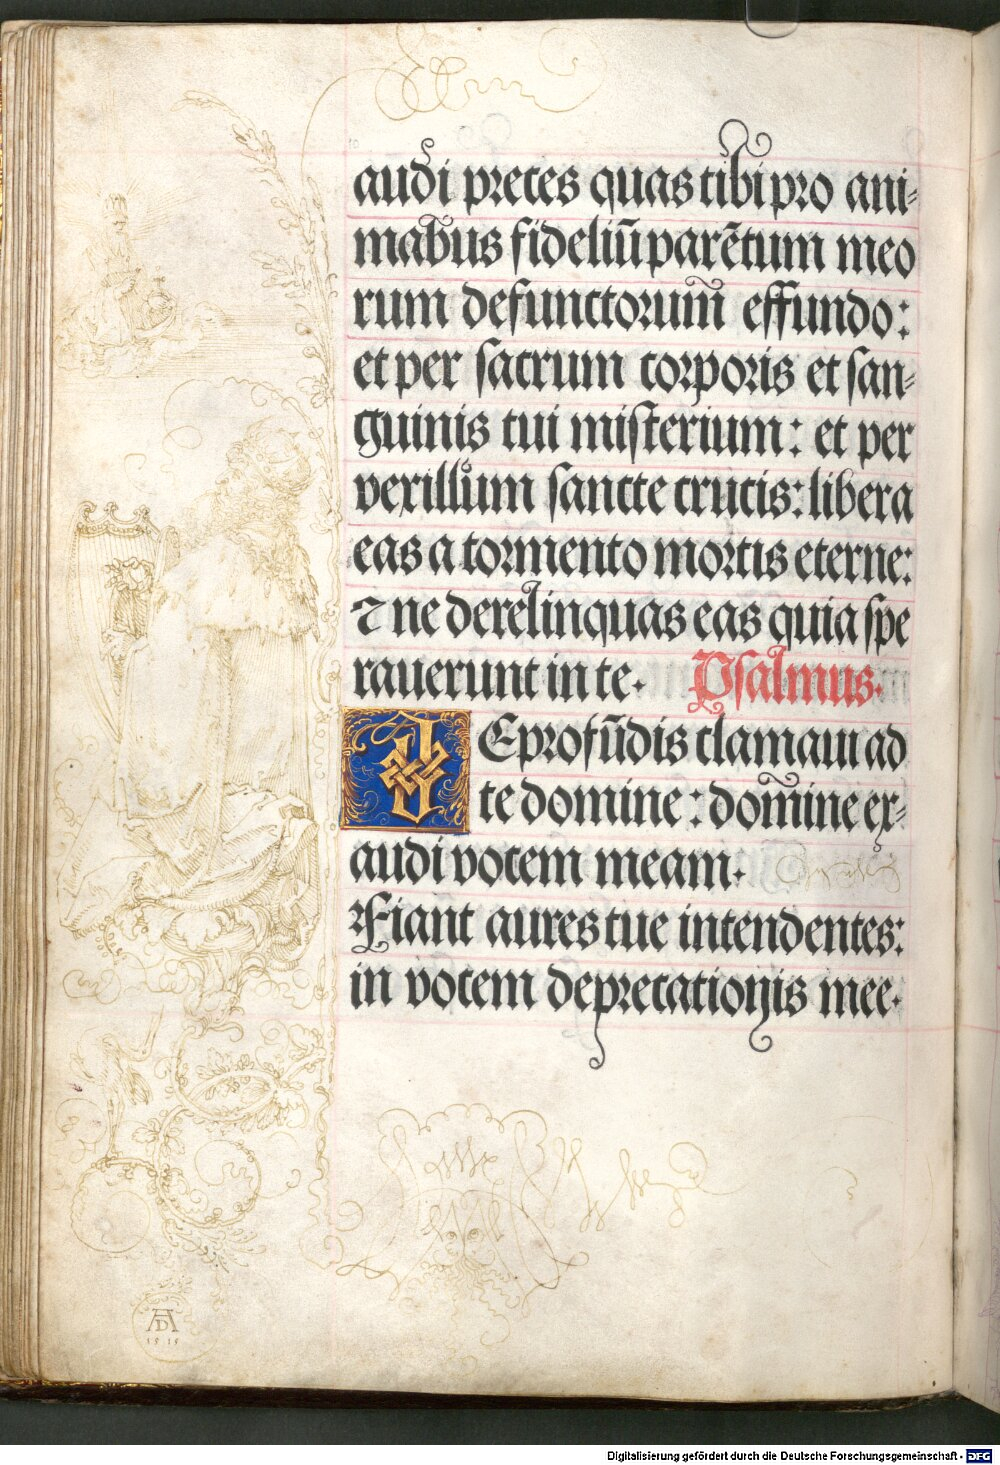 audi preces quas tibi pro ani-
mabus fideliū parētum meo
rum defunctorum̄ effundo:
et per sacrum corporis et san-
guinis tui misterium: et per
vexillum sancte crucis: libera
eas a tormento mortis eterne:
⁊ ne derelinquas eas quia spe
rauerunt in te. Psalmus.
DE profūdis clamaui ad
te domine: dom̄ine ex-
audi vocem meam.
Fiant aures tue intendentes:
in vocem deprecationis mee.
AD
1515
Digitalisierung gefördert durch die Deutsche Forschungsgemeinschaft - DFG